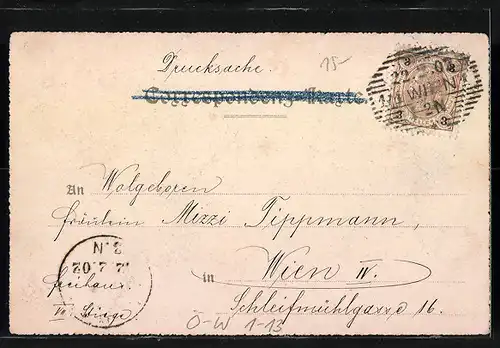 15-
Drucksache.
Correspondenz-Karte
22. 02
1/1 WIEN 1
2N
3 3
An Wolgeboren
Fräulein Mizzi Tippmann,
in Wien IV.
Schleifmühlgasse 16.
3.N
12.2.02
Freihaus
IV. Stiege.
O-W 1-13